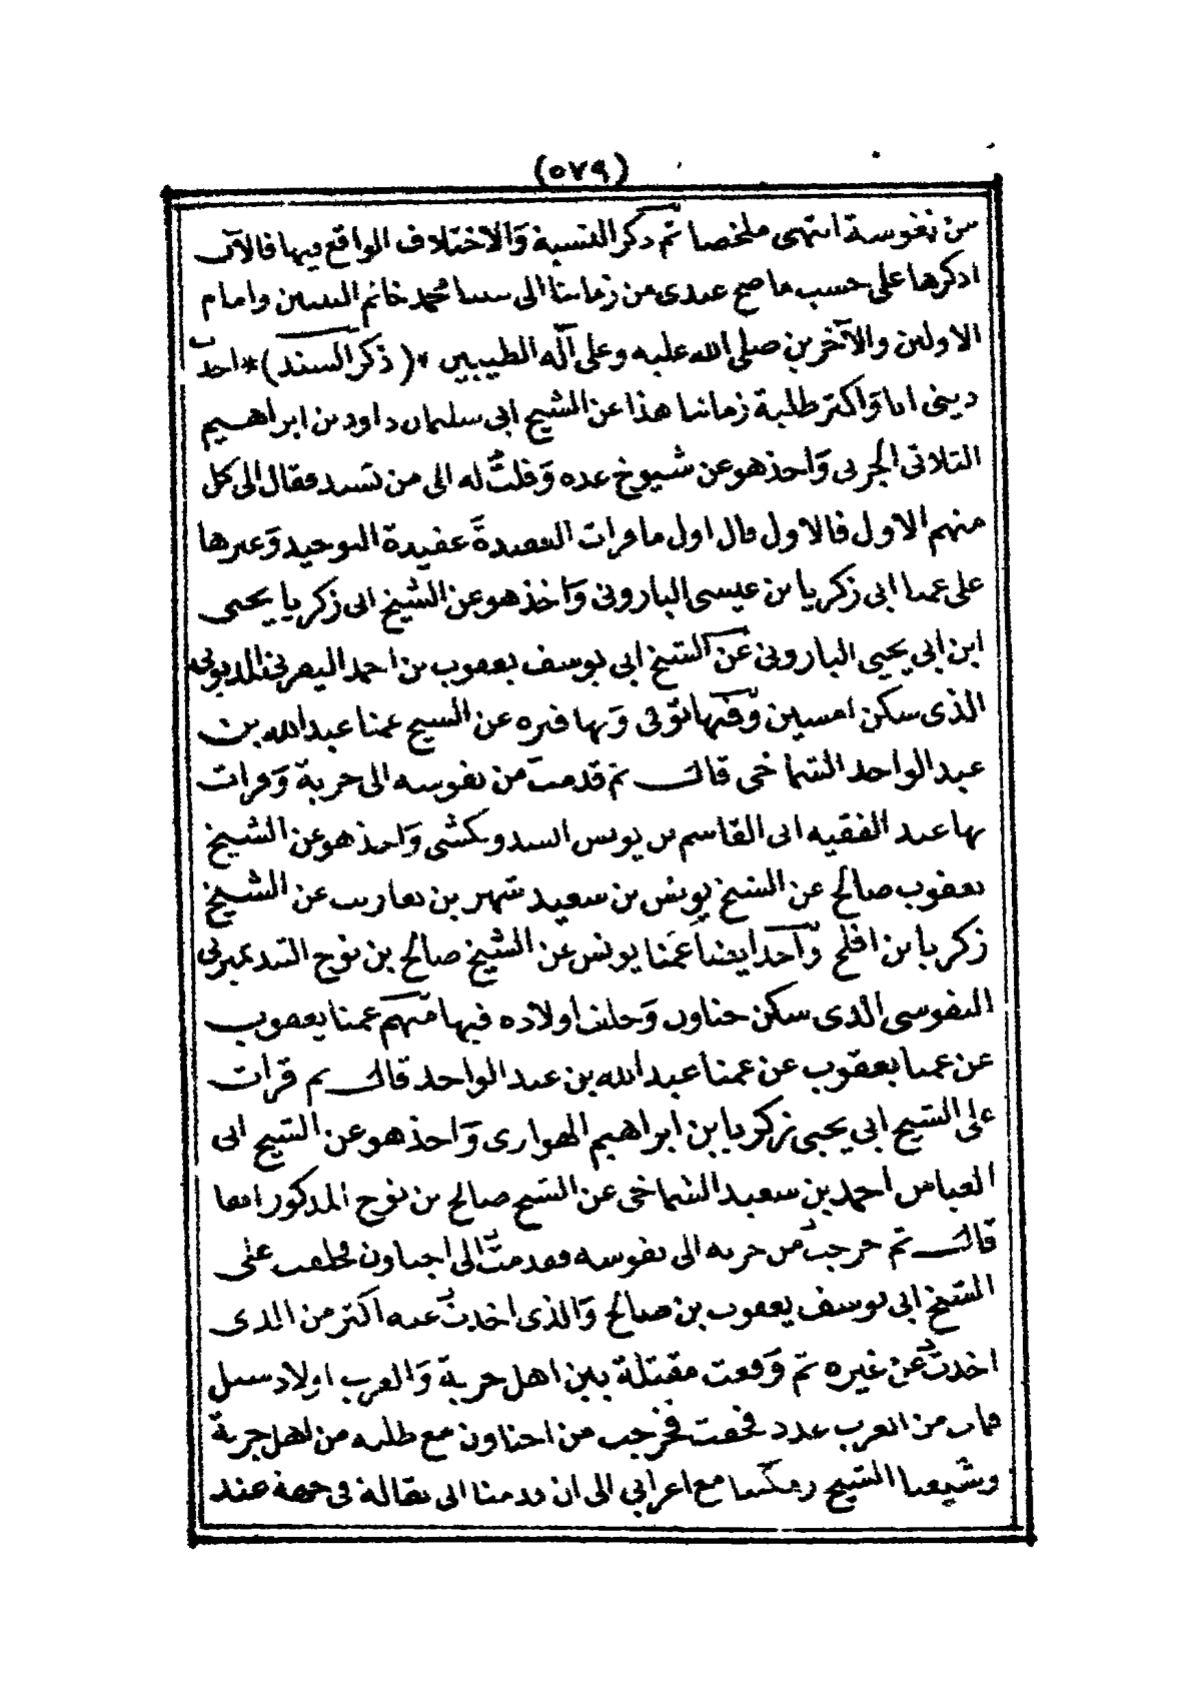 (٥٧٩)
من نفوسة انتهى ملخصا تم ذكر النسبة والاختلاف الواقع فيها فالآن
اذكرها على حسب ما صح عندى من زماننا الى سيدنا محمد خاتم النبيين وامام
الاولين والآخرين صلى الله عليه وعلى آله الطيبين * (ذكر السند) * اخذت
دينى انا واكثر طلبة زماننا هذا عن الشيخ ابى سليمان داود بن ابراهيم
التلاتى الجربى واخذ هو عن شيوخ عدة وقلت له الى من تسند فقال الى كل
منهم الاول فالاول قال اول ما قرات العقيدة عقيدة التوحيد وغيرها
على عمنا ابى زكريا بن عيسى البارونى واخذ هو عن الشيخ ابى زكريا يحيى
ابن ابى يحيى البارونى عن الشيخ ابى يوسف يعقوب بن احمد اليفرنى
الذى سكن امسين وفيها توفى وبها قبره عن الشيخ عمنا عبد الله بن
عبد الواحد الشماخى قال ثم قدمت من نفوسه الى جربة وقرات
بها عند الفقيه ابى القاسم بن يونس السدويكشى واخذ هو عن الشيخ
يعقوب صالح عن الشيخ يونس بن سعيد شهر بن تعاريت عن الشيخ
زكريا بن افلح واخذ ايضا عمنا يونس عن الشيخ صالح بن نوح التندميرتى
النفوسى الذى سكن جناون وخلف اولاده فيها منهم عمنا يعقوب
عن عمنا يعقوب عن عمنا عبد الله بن عبد الواحد قال ثم قرات
على الشيخ ابى يحيى زكريا بن ابراهيم الهوارى واخذ هو عن الشيخ ابى
العباس احمد بن سعيد الشماخى عن الشيخ صالح بن نوح المذكور انفا
قال ثم خرجت من جربه الى نفوسه فقدمت الى اجناون فطلعت على
الشيخ ابى يوسف يعقوب بن صالح والذى اخذت عنه اكثر من الذى
اخذت عن غيره ثم وقعت مقتلة بين اهل جربة والعرب اولاد سبيل
فمات من العرب عدد فخفت فخرجت من اجناون مع طلبه من اهل جربة
وشيعنا الشيخ ومكثنا مع اعرابى الى ان قدمنا الى بقالة فى جهة عند